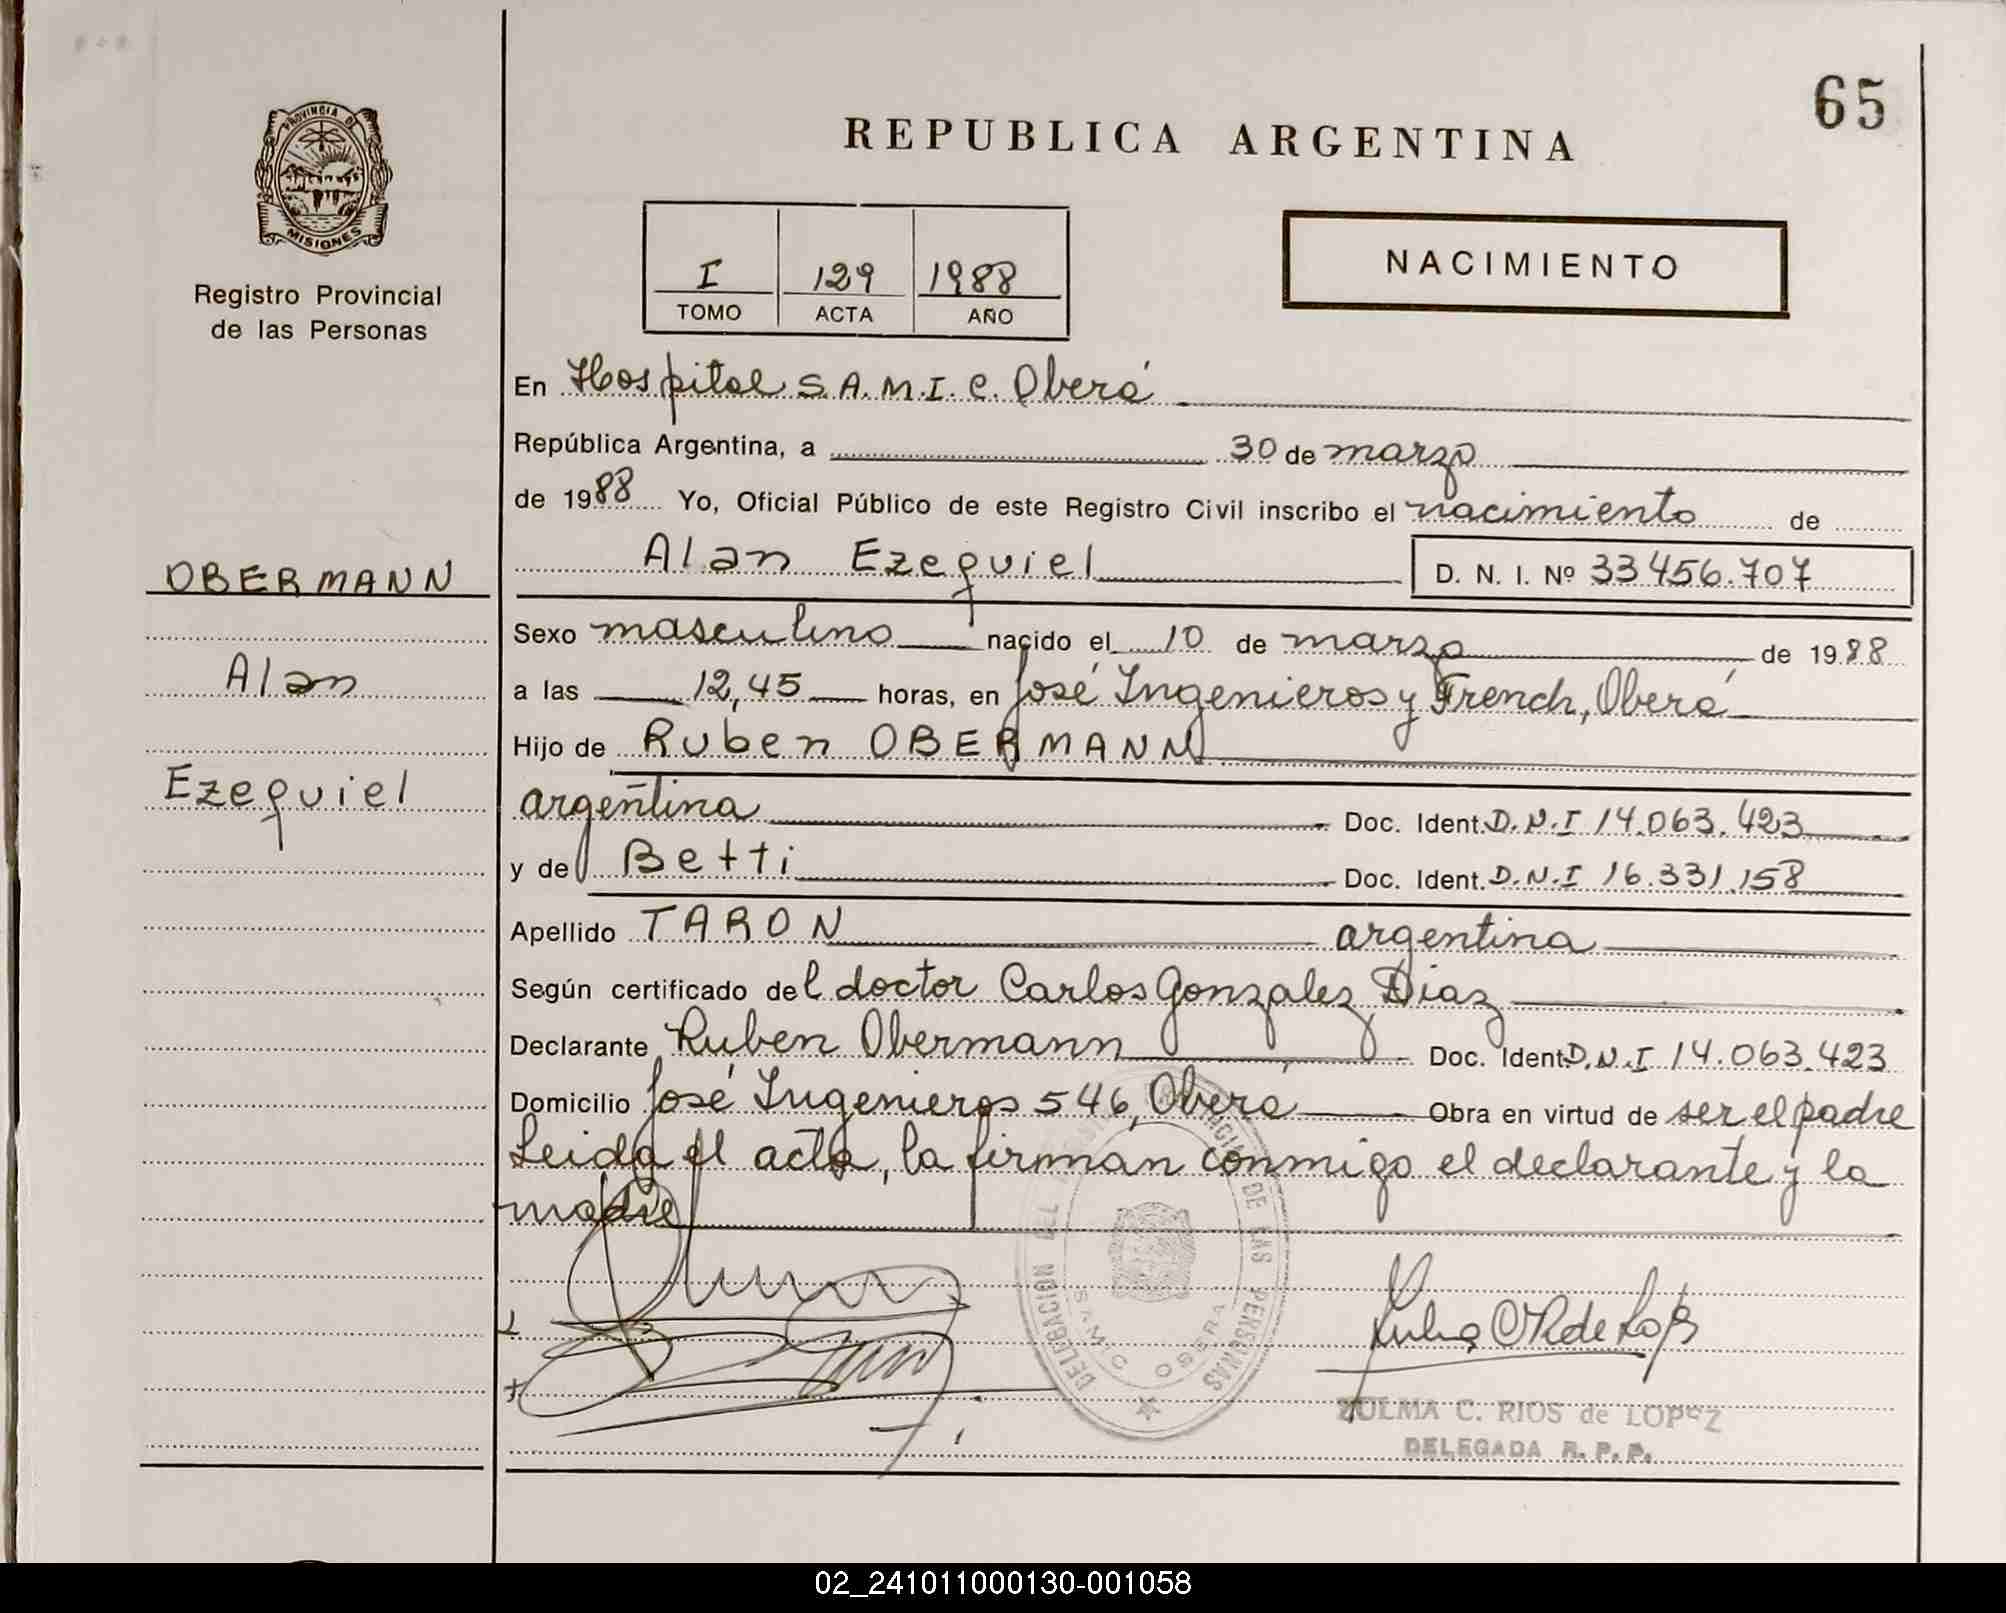 65
PROVINCIA DE
MISIONES
Registro Provincial
de las Personas
REPUBLICA ARGENTINA
I 129 1988
TOMO ACTA AÑO
NACIMIENTO
En Hospital S.A.M.I.C. Oberá
República Argentina, a 30 de marzo
de 1988 Yo, Oficial Público de este Registro Civil inscribo el nacimiento de
Alan Ezequiel D. N. I. Nº 33456.707
OBERMANN
Alan
Ezequiel
Sexo masculino nacido el 10 de marzo de 1988
a las 12,45 horas, en José Ingenieros y French, Oberá
Hijo de Ruben OBERMANN
argentina Doc. Ident. D.N.I 14.063.423
y de Betti Doc. Ident. D.N.I 16.331.158
Apellido TARON argentina
Según certificado del doctor Carlos Gonzalez Diaz
Declarante Ruben Obermann Doc. Ident. D.N.I 14.063.423
Domicilio José Ingenieros 546, Oberá Obra en virtud de ser el padre
Leida el acta, la firman conmigo el declarante y la
madre
DELEGACION DEL REGISTRO PROVINCIAL DE LAS PERSONAS
SAMIC OBERA
ZULMA C. RIOS de LOPEZ
DELEGADA R. P. P.
02_241011000130-001058